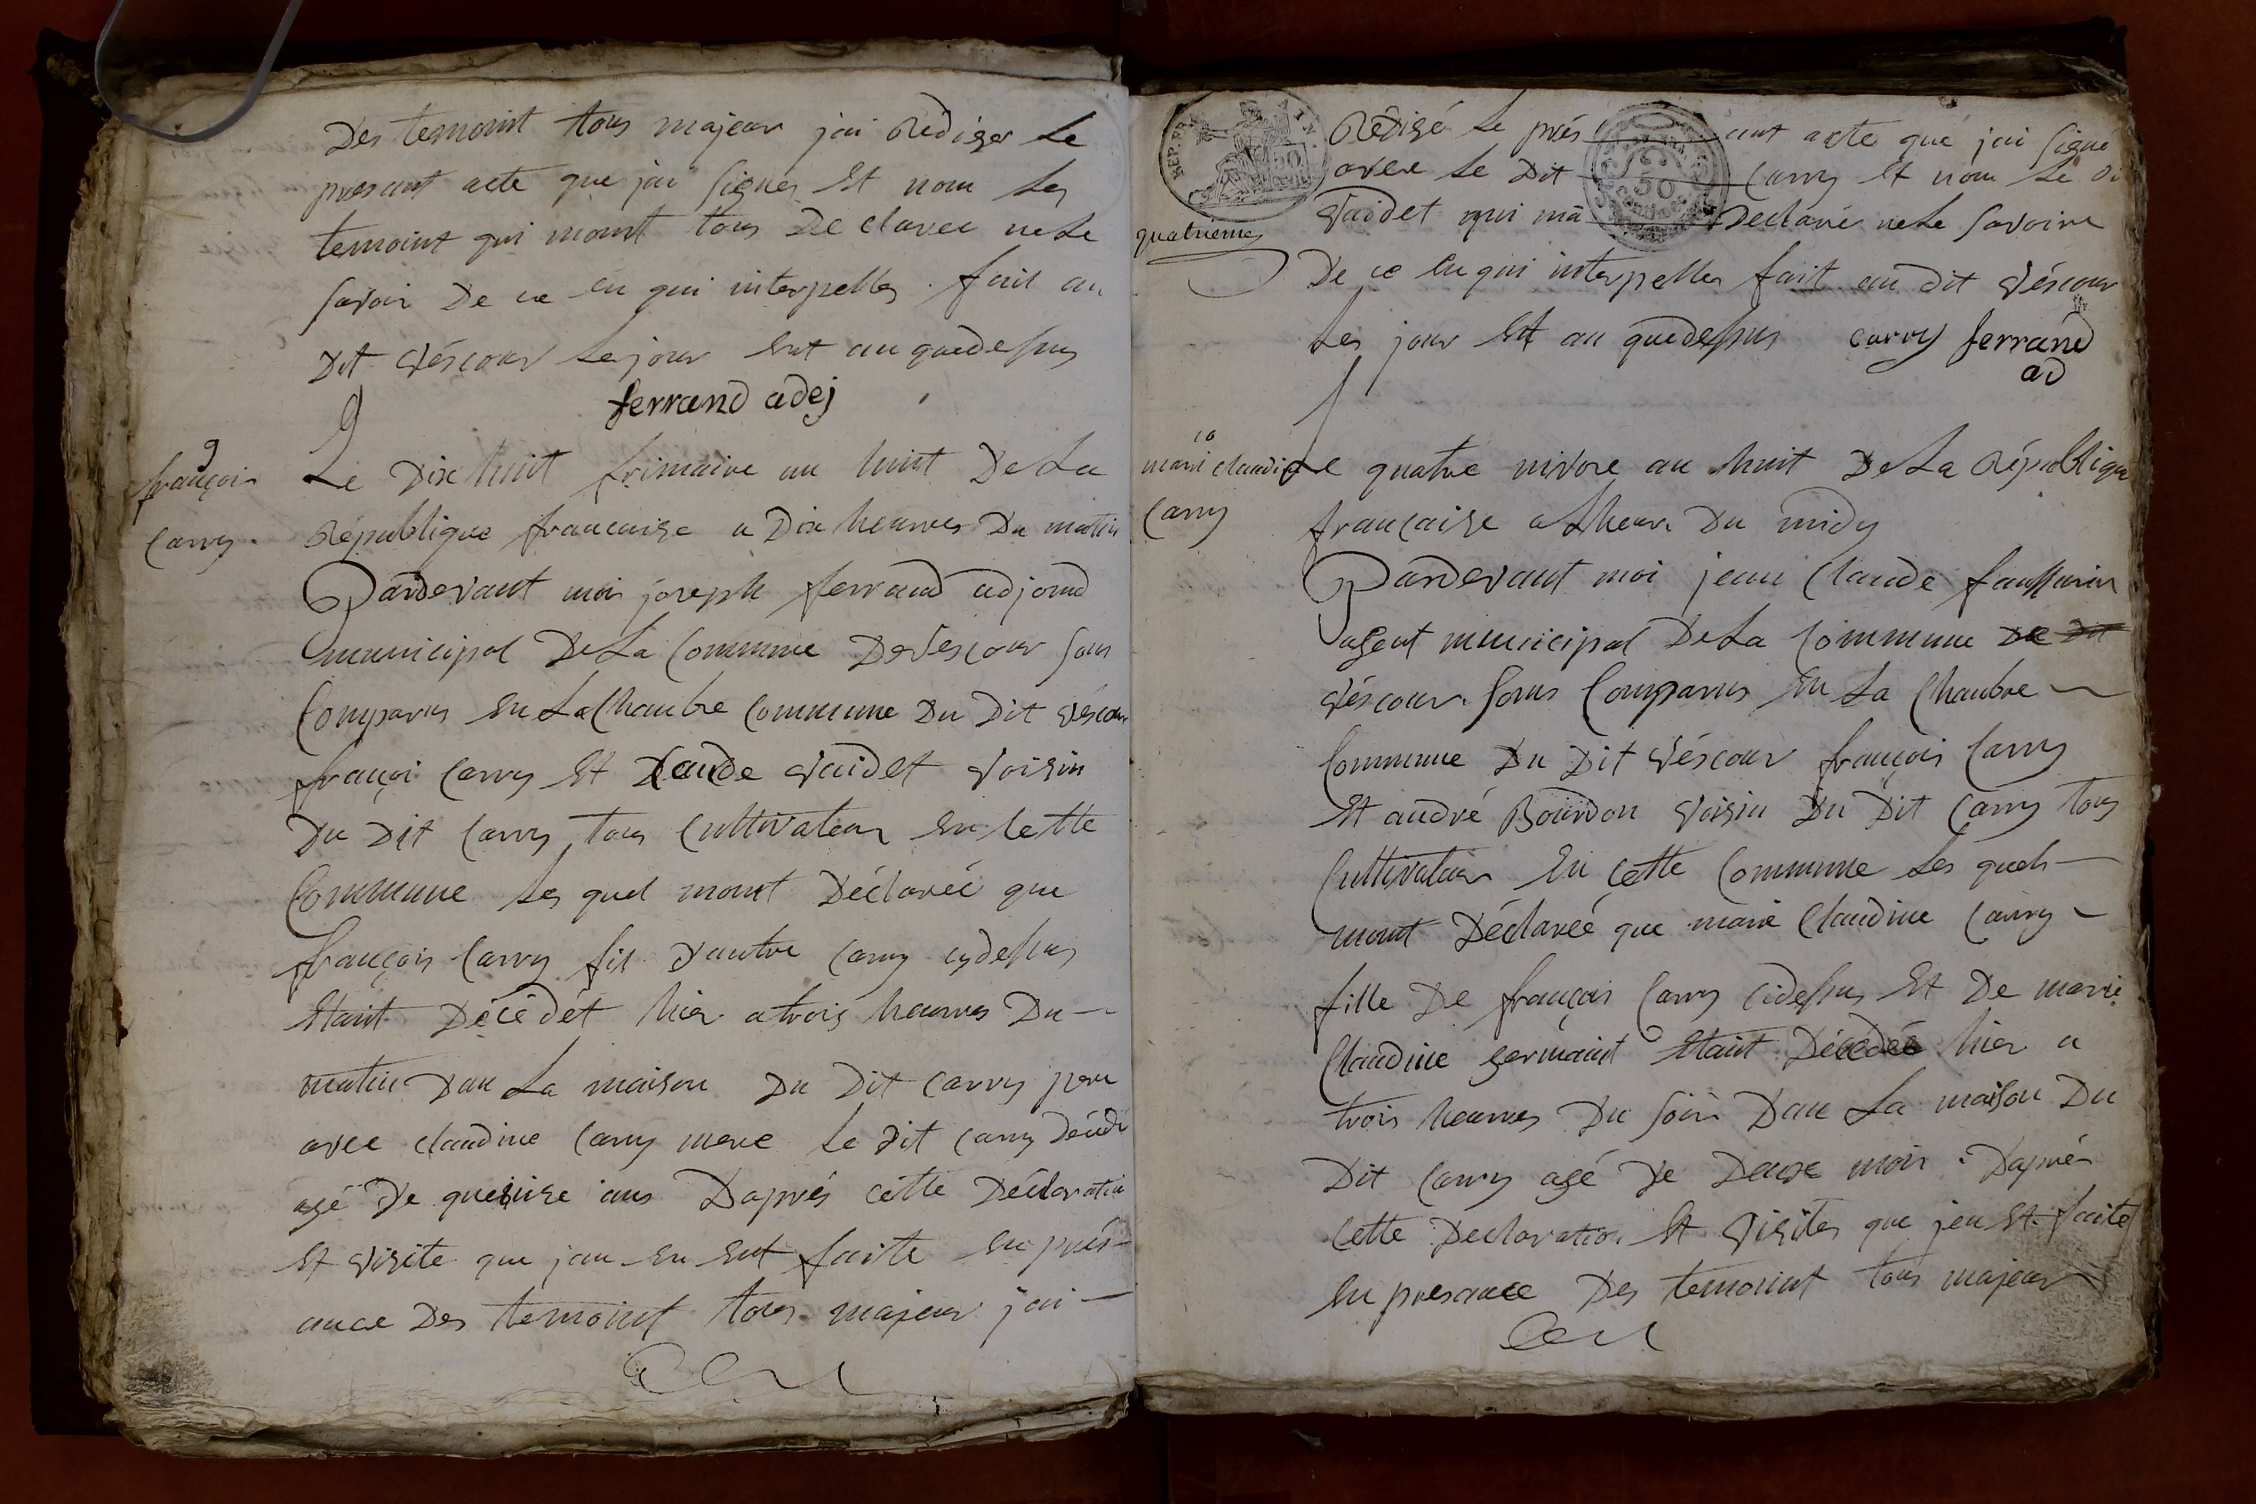 Des temoint tous majeur jai Rediger Le
presant acte que jai signés Et nom Les
temoint qui mont tous Declaree ne Le
savoir De ce en qui interpelles . fait au
Dit véscour Le jour Ent an quedessus
ferrand adej
9
françois
Carry
Le Dix huit frimaire an huit De La
République francaise a Dix heures Du matin
Pardevant moi joseph ferrand adjoind
municipal De La Commune De Vescour sous
Comparus En La Chambre Commune Du Dit véscour
françoi Carry Et Claude vaidet voisin
Du Dit Carry tous Cultivateur En Cette
Commune Les quel mont Déclareé que
françois Carry fis D'autre Carry cydessus
Etant Décédét hier a trois heures Du
matin Dan La maison Du Dit Carry pere
avec claudine Carry mere Le dit Carry Décédé
agé De quesise ans Daprés cette Déclaration
Et visite que jau En Ent faite En prés
ance Des temoint tous majeur jai
REP. FRA.
50
50
quatrieme
Rédigé Le prés ant acte que jai signé
avec Le Dit Carry Et nom Le Di
vaidet qui mà Declaré ne Le savoire
De ce En qui interpeller fait au dit véscour
Les jour Et an quedessus carry ferrand
ad
10
marie claudine
Carry
Le quatre nivose an huit De La République
francaise a Lheure Du midy
Pardevant moi jean Claude faussurier
agent municipal De La Commune De Dit
véscour sous Comparus En La Chambre
Commune Du Dit véscour françois Carry
Et andré Bourdon voisin Du Dit Carry tous
Cultivateur En Cette Commune Les quels
mont Déclareé que marie Claudine Carry
fille De françois Carry cidessus Et De marie
Claudine germaint Etant Décédée hier a
trois heures Du soir Dan La maison Du
Dit Carry agé De Deux mois . Daprés
Cette Declaration Et visites que jen Et faite
En presance Des temoint tous majeur